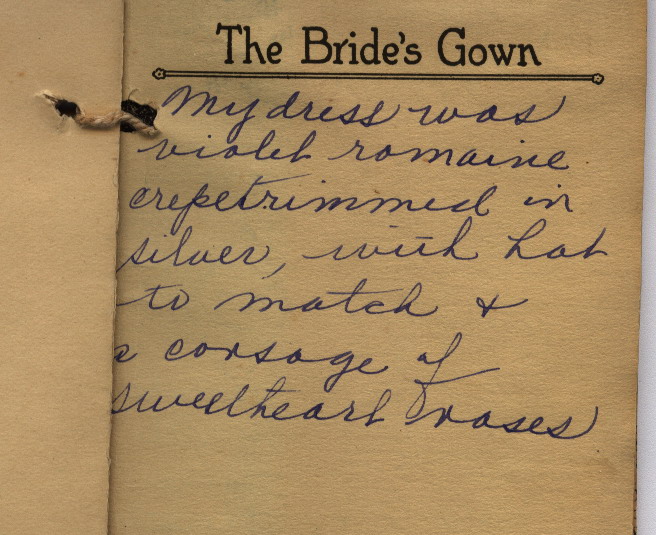 The Bride's Gown
My dress was
violet romaine
crepe trimmed in
silver, with hat
to match &
a corsage of
sweetheart roses